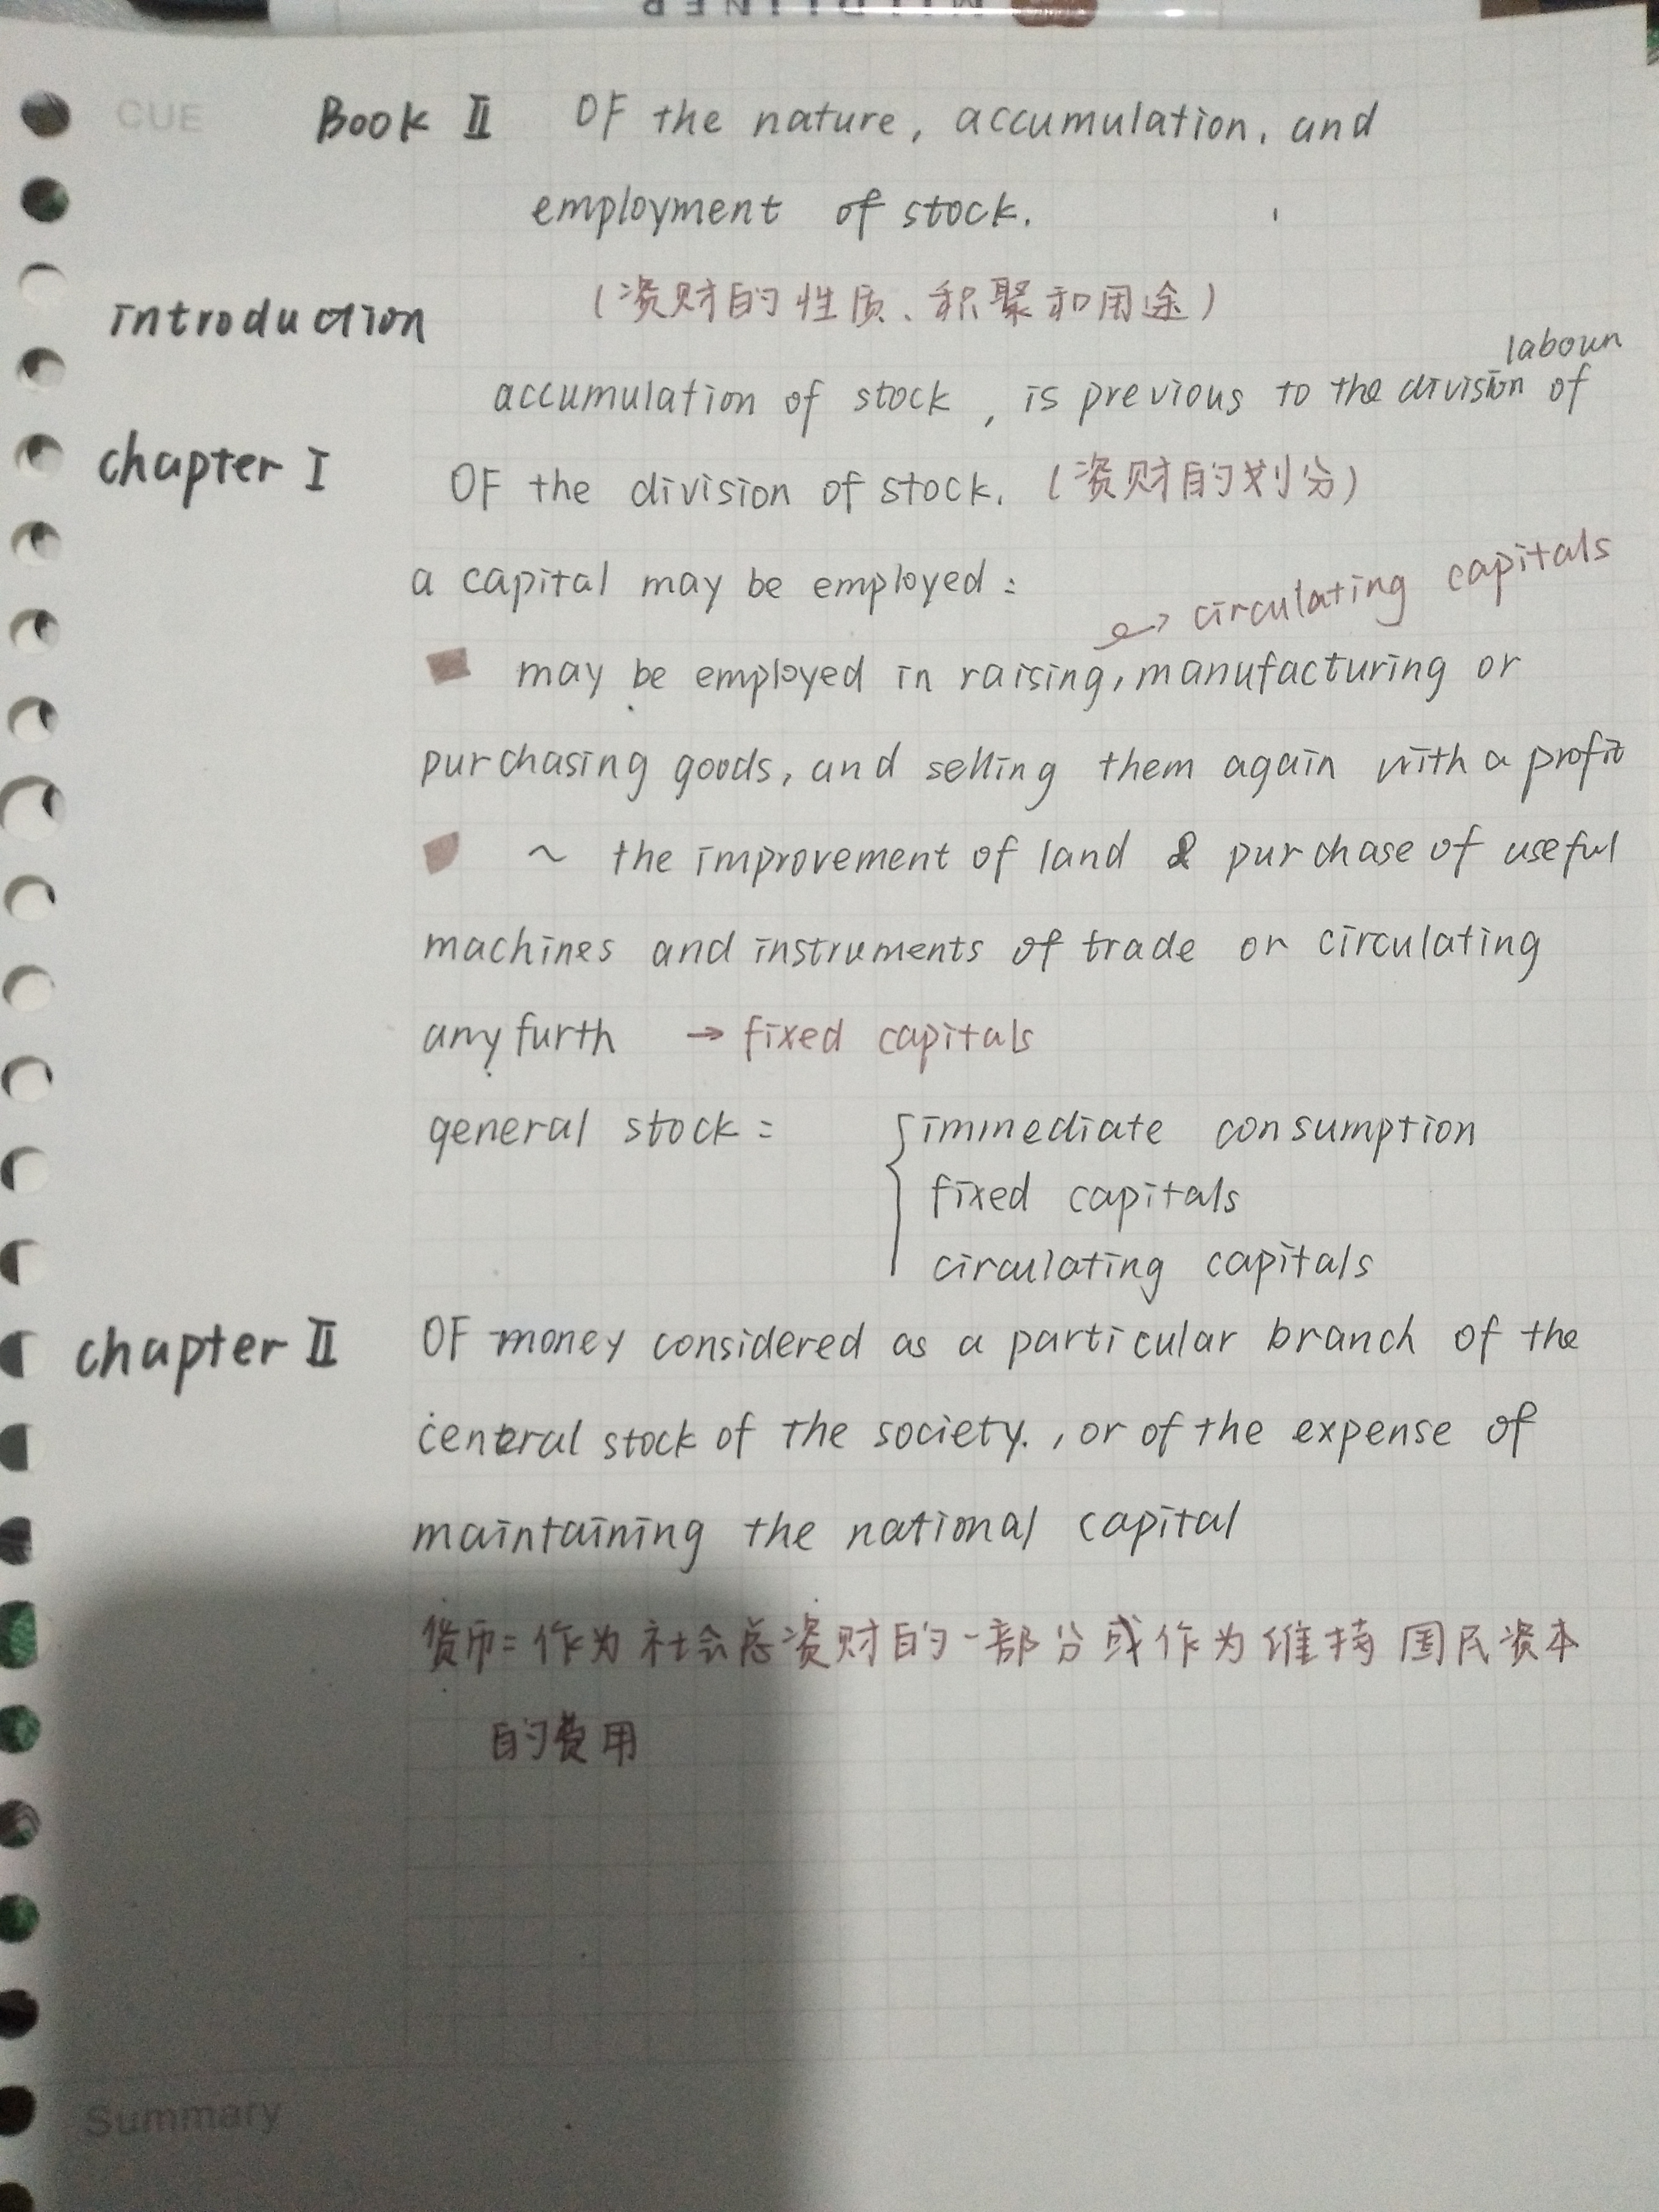 MILDLINER
CUE
Book Ⅱ OF the nature, accumulation, and
employment of stock.
(资财的性质、积聚和用途)
introduction
labour
accumulation of stock, is previous to the division of
chapter Ⅰ OF the division of stock. (资财的划分)
a capital may be employed:
→ circulating capitals
may be employed in raising, manufacturing or
purchasing goods, and selling them again with a profit
~ the improvement of land & purchase of useful
machines and instruments of trade or circulating
any furth → fixed capitals
general stock = { immediate consumption
fixed capitals
circulating capitals
chapter Ⅱ OF money considered as a particular branch of the
central stock of the society., or of the expense of
maintaining the national capital
货币=作为社会总资财的一部分或作为维持国民资本
的费用
Summary